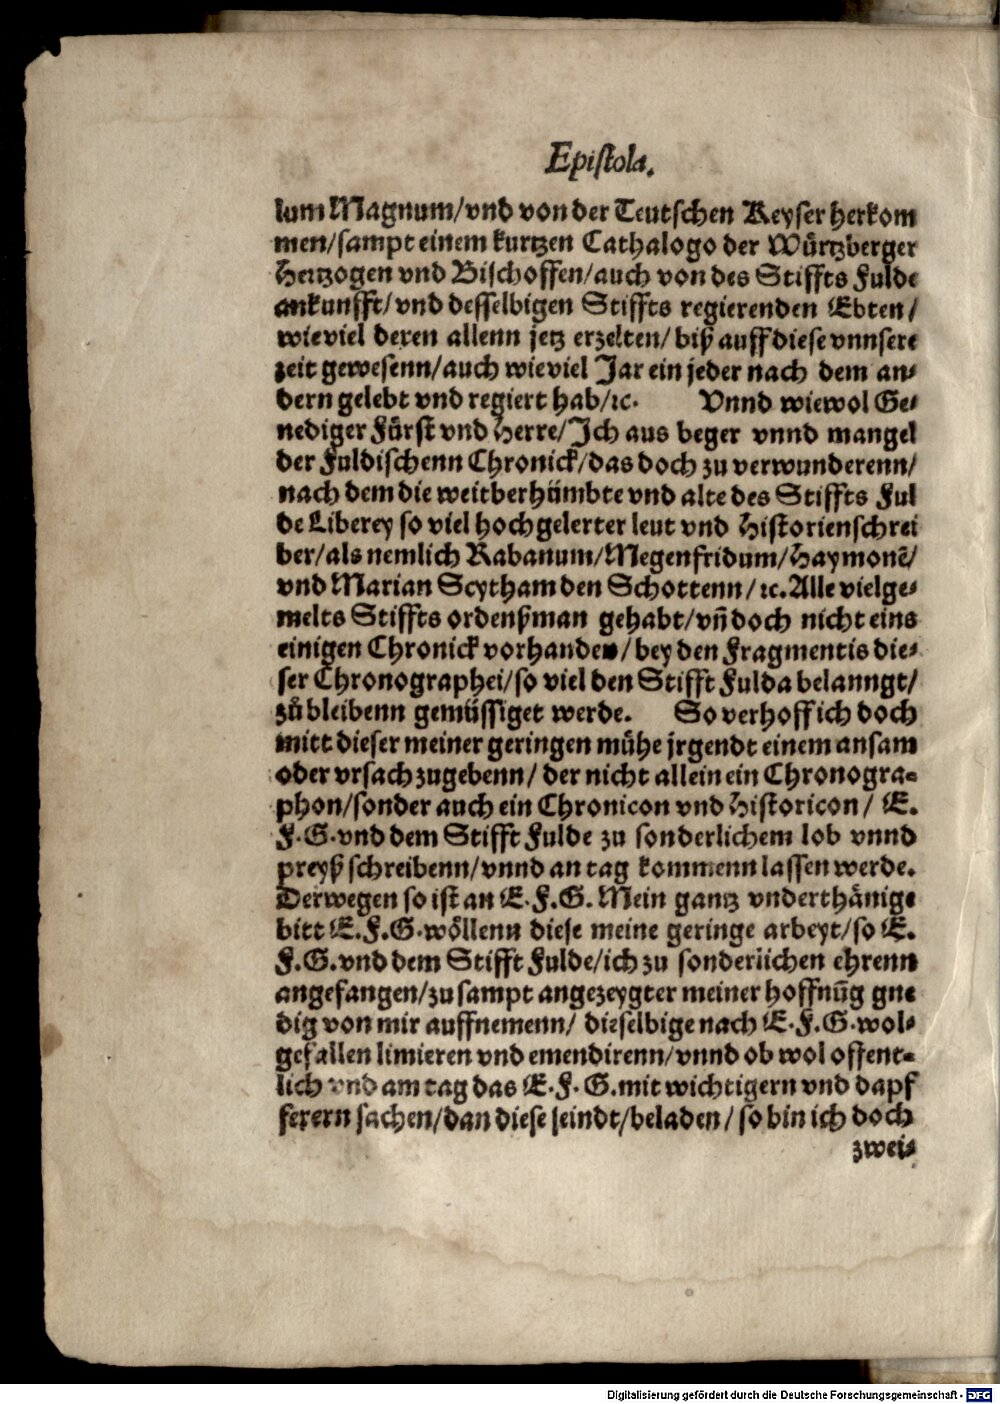 Epistola.
lum Magnum/vnd von der Teutschen Keyser herkom
men/sampt einem kurtzen Cathalogo der Wuͤrtzberger
Hertzogen vnd Bischoffen/auch von des Stiffts Fulde
ankunfft/vnd desselbigen Stiffts regierenden Ebten/
wieviel deren allenn jetz erzelten/biß auff diese vnnsere
zeit gewesenn/auch wieviel Jar ein jeder nach dem an-
dern gelebt vnd regiert hab/ꝛc. Vnnd wiewol Ge-
nediger Fuͤrst vnd Herre/Jch aus beger vnnd mangel
der Fuldischenn Chronick/das doch zu verwunderenn/
nach dem die weitberhuͤmbte vnd alte des Stiffts Ful
de Liberey so viel hochgelerter leut vnd Historienschrei
ber/als nemlich Rabanum/Megenfridum/Haymonē/
vnd Marian Scytham den Schottenn/ꝛc. Alle vielge-
melts Stiffts ordenßman gehabt/vñ doch nicht eins
einigen Chronick vorhanden/bey den Fragmentis die-
ser Chronographei/so viel den Stifft Fulda belanngt/
zuͤ bleibenn gemuͤssiget werde. So verhoff ich doch
mitt dieser meiner geringen muͤhe jrgendt einem ansam
oder vrsach zugebenn/ der nicht allein ein Chronogra-
phon/sonder auch ein Chronicon vnd Historicon/ E.
F.G.vnd dem Stifft Fulde zu sonderlichem lob vnnd
preyß schreibenn/vnnd an tag kommenn lassen werde.
Derwegen so ist an E.F.G. Mein gantz vnderthaͤnige
bitt E.F.G.woͤllenn diese meine geringe arbeyt/so E.
F.G.vnd dem Stifft Fulde/ich zu sonderlichen ehrenn
angefangen/zu sampt angezeygter meiner hoffnūg gne
dig von mir auffnemenn/ dieselbige nach E.F.G.wol-
gefallen limieren vnd emendirenn/vnnd ob wol offent-
lich vnd am tag das E.F.G.mit wichtigern vnd dapf
ferern sachen/dan diese seindt/beladen/so bin ich doch
zwei-
Digitalisierung gefördert durch die Deutsche Forschungsgemeinschaft - DFG